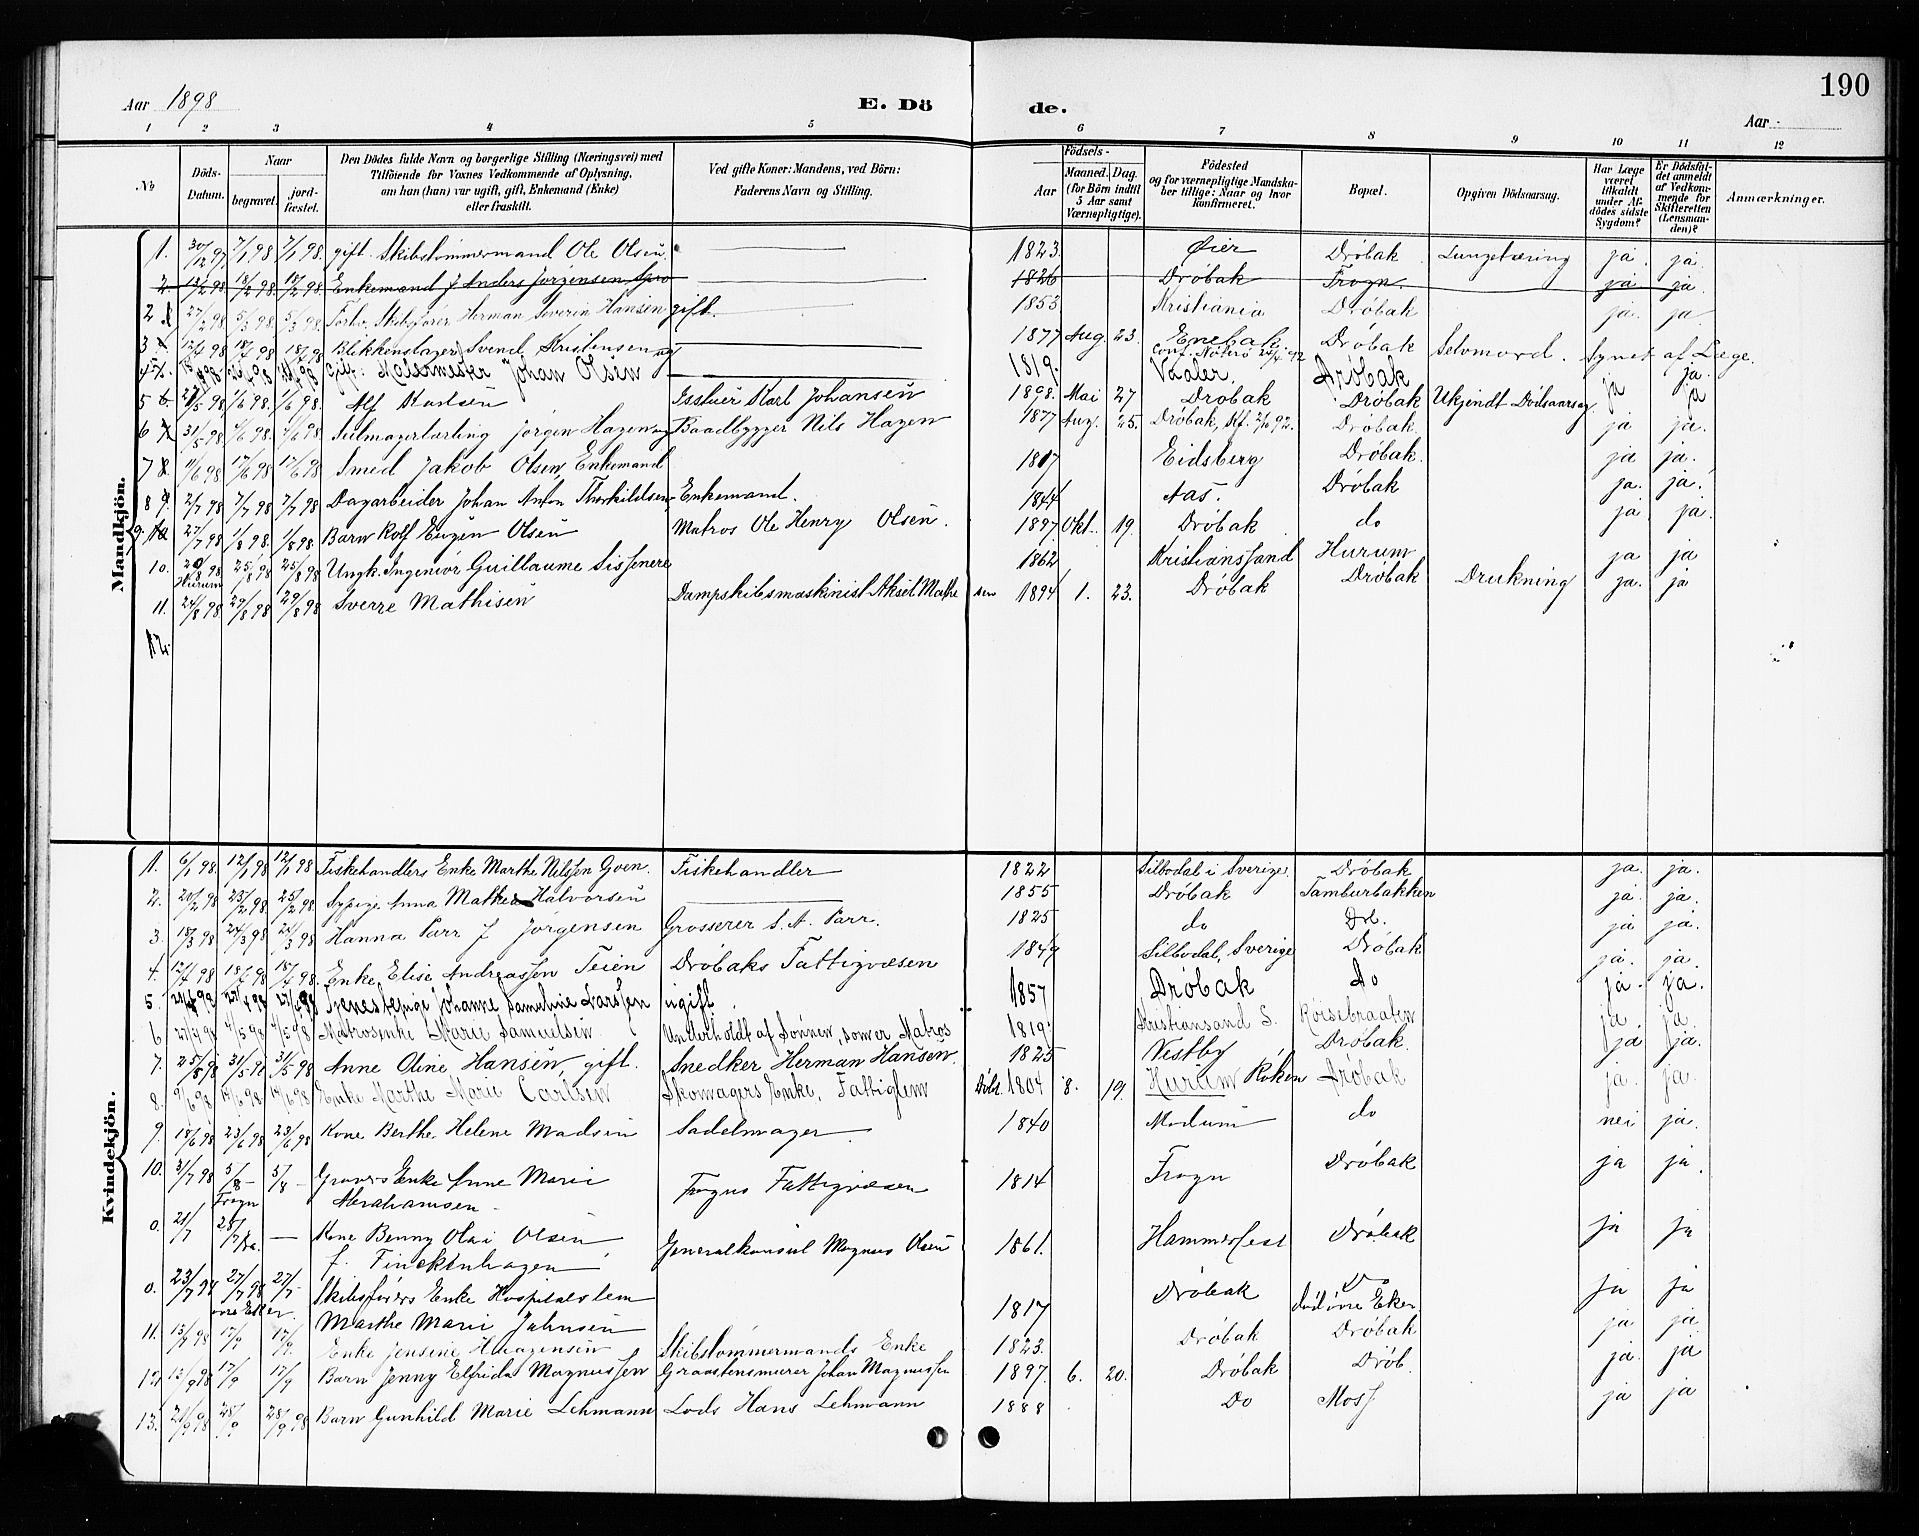 190
Aar 1898
E. Dö
de.
Aar
1 2 3 4 5 6 7 8 9 10 11 12
No
Döds-Datum.
Naar
begravet.
jord-fæstet.
Den Dödes fulde Navn og borgerlige Stilling (Næringsvei) med
Tilföiende for Voxnes Vedkommende af Oplysning,
om han (hun) var ugift, gift, Enkemand (Enke)
eller fraskilt.
Ved gifte Koner: Mandens, ved Börn:
Faderens Navn og Stilling.
Födsels-
Aar
Maaned. Dag.
(for Börn indtil
5 Aar samt
Værnepligtige).
Födested
og for værnepligtige Mandska-
ber tillige: Naar og hvor
konfirmeret.
Bopæl.
Opgiven Dödsaarsag.
Har Læge
været
tilkaldt
under Af-
dödes sidste
Sygdom?
Er Dödsfal-
det anmeldt
af Vedkom-
mende for
Skifteretten
(Lensman-
den)?
Anmærkninger.
Mandkjön.
1. 30/12 97 7/1 98 7/1 98. gift. Skibstömmermand Ole Olsen. 1823. Öier Dröbak Lungetæring ja. ja.
2. 13/2 98 18/2 98. 18/2 98. Enkemand Anders Jörgensen 1826 Dröbak Frogn. ja ja.
2 27/2 98 5/3 98 5/3 98. Forhv. Skibsförer Herman Severin Hansen gift. 1853 Kristiania Dröbak ja. ja
3 12/4 98 18/4 98 18/4 98 Blikkenslager Svend Kristensen ug 1877 Aug. 23. Enebak Dröbak Selvmord. Synet af Læge.
4 gift: Malermester Johan Olsen 1819. Vaaler. Dröbak ja.
5 1/6 98. 1/6 98. Alf Karlsen Karl Johansen 1898. Mai 27 Dröbak Dröbak Ukjendt Dödsaarsag ja ja
6 31/5 98. 4/6 98. 4/6 98 Seilmagerlærling Jörgen Hagen ug Baadbygger Nils Hagen 1877 Aug. 25. Dröbak, Dröbak. ja ja.
7 11/6 98 17/6 98 17/6 98 Smed Jakob Olsen, Enkemand 1817 Eidsberg Dröbak. ja ja.
8 2/7 98 7/7 98 7/7 98 Dagarbeider Johan Anton Thorkildsen Enkemand. 1844 Aas. Dröbak ja. ja.
9. 27/7 98 1/8 98. 1/8 98. Barn Rolf Eugen Olsen Matros Ole Henry Olsen. 1897 Okt. 19. Dröbak do ja ja.
10. 20/8 98 Hurum 25/8 98 25/8 98 Ungk. Ingeniör Guillaume Sissenere 1862 Kristianssand Hurum ja ja
11. 24/8 98 29/8 98 29/8 98 Sverre Mathisen Dampskibsmaskinist Aksel Mathisen 1894 1. 23. Dröbak Dröbak Drukning ja. ja
12.
Kvindekjön.
1. 6/1 98. 12/1 98 12/1 98 Fiskehandlers Enke Marthe Nilssen Goen. Fiskehandler 1822 Silbodal i Sverige. Dröbak ja. ja.
2. 20/2 98 25/2 98 25/2 98. Sypige Anna Mathea Halvorsen 1855 Dröbak Tamburbakken ja. ja.
3. 18/3 98 24/3 98 24/3 98 Hanna Parr f Jörgensen Grosserer S. A. Parr. 1825 do ja ja.
4. 12/4 98 18/4 98 18/4 98. Enke Elise Andreassen Teien Dröbaks Fattigvæsen 1849 Silbodal, Sverige Dröbak ja. ja.
5. 27/4 98 27/4 98 Johanne Samueline Larssen ugift. 1857 Dröbak do ja. ja.
6. 4/5 98 4/5 98 Matrosenke Marie Samuelsen. Underholdt af Sönnen, som er Matros 1819. Kristiansand S. ja ja.
7. 25/5 98 31/5 98 31/5 98 Anne Oline Hansen, gift. Snedker Herman Hansen. 1825 Vestby Dröbak. ja ja.
8. 9/6 98 14/6 98 14/6 98 Enke Marthe Marie Carlsen Skomagers Enke, Fattiglem 1804 8. 19. Hurum Röken Dröbak ja. ja.
9. 18/6 98 23/6 98 23/6 98 Kone Berthe Helene Madsen Sadelmager. 1840 Modum do nei ja.
10. 31/7 98 5/8 — Frogn 5/8 — Gravers Enke Anne Marie Abrahamsen. Frogns Fattigvæsen 1814 Frogn Dröbak ja ja.
0. 21/7 28/7 — Kone Benny Olsen f. Finckenhagen Generalkonsul Magnus Olsen 1861. Hammerfest Dröbak ja ja
0. 23/7 27/7 98 27/7 Skibsförers Enke Hospitalslem Marthe Marie Johnsen 1817 Dröbak Do död övre Eker ja ja
11. 13/9 98 17/9 17/9. Enke Jensine Haagensen Skibstömmermands Enke 1823. Dröbak Dröbak ja ja
12 13/9 98 17/9 17/9 Barn Jenny Elfrida Magnussen Graastensmurer Johan Magnussen 1897. 6. 20. Dröbak Dröb. ja. ja
13. 21/9 98 28/9 28/9 98 Barn Gunhild Marie Lehmann Lods Hans Lehmann 1888 Do Moss ja ja